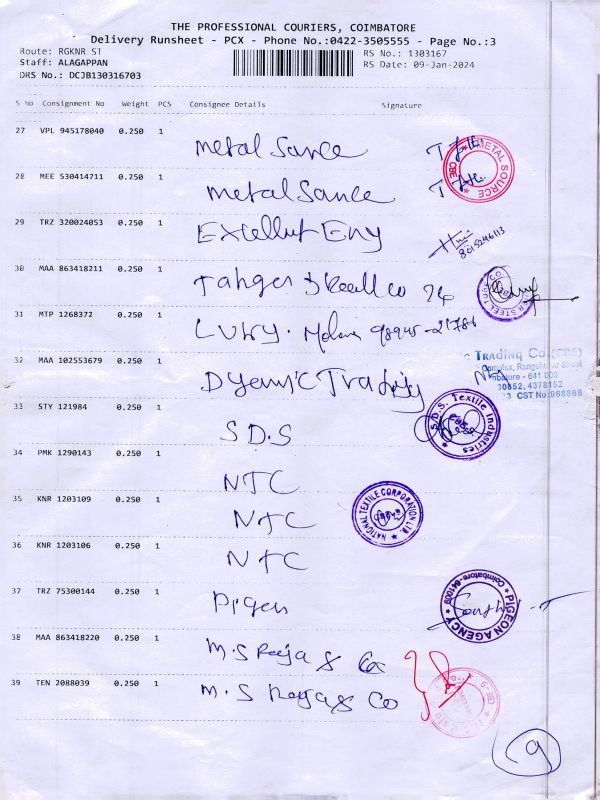 THE PROFESSIONAL COURIERS, COIMBATORE
Delivery Runsheet - PCX - Phone No.:0422-3505555 - Page No.:3
Route: RGKNR ST
RS No.: 1303167
Staff: ALAGAPPAN
RS Date: 09-Jan-2024
DRS No.: DCJB130316703
S No Consignment No Weight PCS Consignee Details Signature
27 VPL 945178040 0.250 1
Metal Sance
METAL SOURCE CBE
28 MEE 530414711 0.250 1
Metal Sance
29 TRZ 320024053 0.250 1
Excellut Eny
30 MAA 863418211 0.250 1
31 MTP 1268372 0.250 1
32 MAA 102553679 0.250 1
Dyamic Trading
TRADING CO.(CBE)
Complex, Rangai Street
641 008
30852, 4378152
CST No:968868
33 STY 121984 0.250 1
S.D.S
S.D.S. Textile Industries
34 PMK 1290143 0.250 1
NTC
35 KNR 1203109 0.250 1
NTC
NATIONAL TEXTILE CORPORATION LTD.
36 KNR 1203106 0.250 1
NTC
37 TRZ 75300144 0.250 1
Pigeu
PIGEON AGENCY
38 MAA 863418220 0.250 1
M.S Raja & Co
39 TEN 2088039 0.250 1
M.S Raja & Co
9